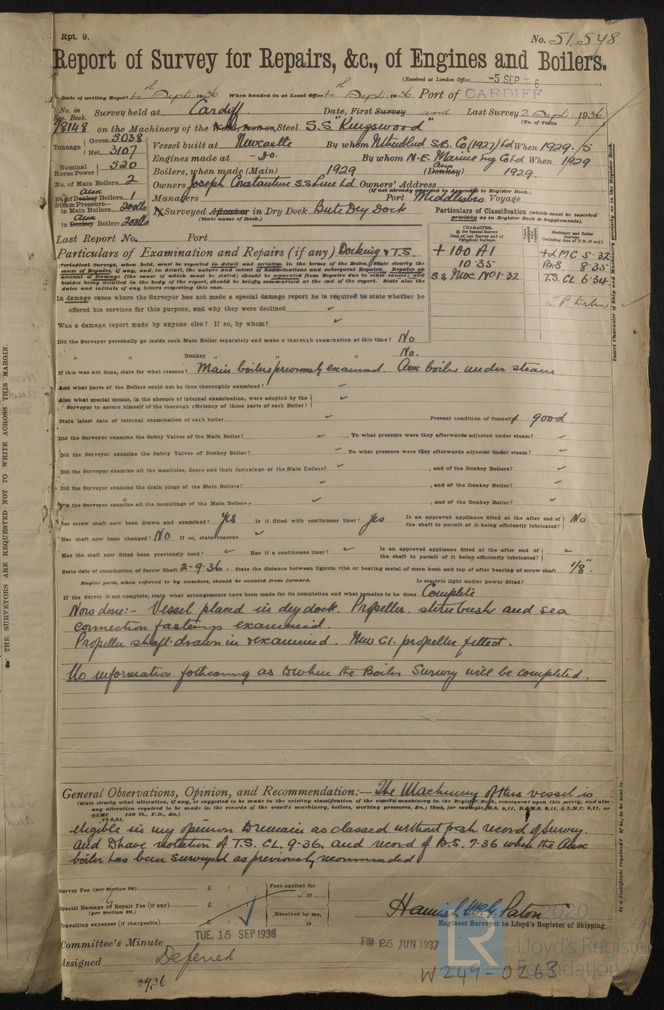 Rpt. 9.
No. 51548
Report of Survey for Repairs, &c., of Engines and Boilers.
(Received at London Office -5 SEP
Date of writing Report 4th Sept 1936. When handed in at Local Office 4th Sept 1936. Port of CARDIFF
No. in Reg. Book. Survey held at Cardiff Date, First Survey and Last Survey 2 Sept 1936
(No. of Visits
78148 on the Machinery of the Wood, Iron or Steel S.S. "Kingswood"
Tonnage Gross 5038 Net 3107
Vessel built at Newcastle By whom S.B. Co (1927) Ld When 1929. 5
Engines made at - Do. By whom N.E. Marine Eng Co Ld When 1929
Nominal Horse Power 520
Boilers, when made (Main) 1929 (Donkey) Aux 1929.
No. of Main Boilers 2
Owners Joseph Constantine S.S. Line Ld Owners' Address
(if not already recorded in Appendix to Register Book.)
No. of Donkey Boilers Aux 1
Managers Port Middlesbro Voyage
Steam Pressure— in Main Boilers 200 lbs
If Surveyed Afloat or in Dry Dock Bute Dry Dock
(State name of Dock.)
in Donkey Boiler Aux 200 lbs
Particulars of Classification (which must be inserted precisely as in Register Book & Supplements).
Last Report No. Port
+ 100 A1
10.35
SS Mbo No 1-32
+ LMC 5.32
B&S 8.35
T.S. CL 6.34
Particulars of Examination and Repairs (if any) Docking & T.S.
In damage cases where the Surveyor has not made a special damage report he is required to state whether he
offered his services for this purpose, and why they were declined
Was a damage report made by anyone else? If so, by whom?
Did the Surveyor personally go inside each Main Boiler separately and make a thorough examination at this time? No
" " Donkey " " " No.
If this was not done, state for what reasons? Main boilers previously examined. Aux boiler under steam
And what parts of the Boilers could not be thus thoroughly examined?
Also what special means, in the absence of internal examination, were adopted by the
Surveyor to assure himself of the thorough efficiency of those parts of each Boiler?
State latest date of internal examination of each boiler Present condition of funnel good
Did the Surveyor examine the Safety Valves of the Main Boiler? To what pressure were they afterwards adjusted under steam?
Did the Surveyor examine the Safety Valves of Donkey Boiler? To what pressure were they afterwards adjusted under steam?
Did the Surveyor examine all the manholes, doors and their fastenings of the Main Boilers? , and of the Donkey Boiler?
Did the Surveyor examine the drain plugs of the Main Boilers? , and of the Donkey Boiler?
Did the Surveyor examine all the mountings of the Main Boilers? , and of the Donkey Boiler?
Has screw shaft now been drawn and examined? Yes Is it fitted with continuous liner? Yes Is an approved appliance fitted at the after end of the shaft to permit of it being efficiently lubricated? No
Has shaft now been changed? No If so, state reasons
Has the shaft now fitted been previously used? Has it a continuous liner? Is an approved appliance fitted at the after end of the shaft to permit of it being efficiently lubricated?
State date of examination of Screw Shaft 2-9-36. State the distance between lignum vitæ or bearing metal of stern bush and top of after bearing of screw shaft 1/8".
Engine parts, when referred to by numbers, should be counted from forward. Is electric light and/or power fitted?
If the Survey is not complete, state what arrangements have been made for its completion and what remains to be done. Complete
Now done:- Vessel placed in dry dock. Propeller, stern bush and sea
connection fastenings examined.
Propeller shaft drawn in & examined. New C.I. propeller fitted.
No information forthcoming as to when the Boiler Survey will be completed.
General Observations, Opinion, and Recommendation:— The Machinery of this vessel is
eligible in my opinion to remain as classed without fresh record of survey.
and to have notation of T.S. CL. 9.36, and record of B.S. 7.36 when the Aux
boiler has been surveyed as previously recommended
Survey Fee (per Section 29) £ : :
Fees applied for
19
Special Damage or Repair Fee (if any) £ : :
(per Section 29.)
Received by me,
19
Travelling expenses (if chargeable) £ : :
Engineer Surveyor to Lloyd's Register of Shipping.
Committee's Minute TUE. 15 SEP 1936 FRI 25 JUN 1937
Assigned Deferred
9.36
W249-0263
2020
LR
Lloyd's Register
Foundation
THE SURVEYORS ARE REQUESTED NOT TO WRITE ACROSS THIS MARGIN.